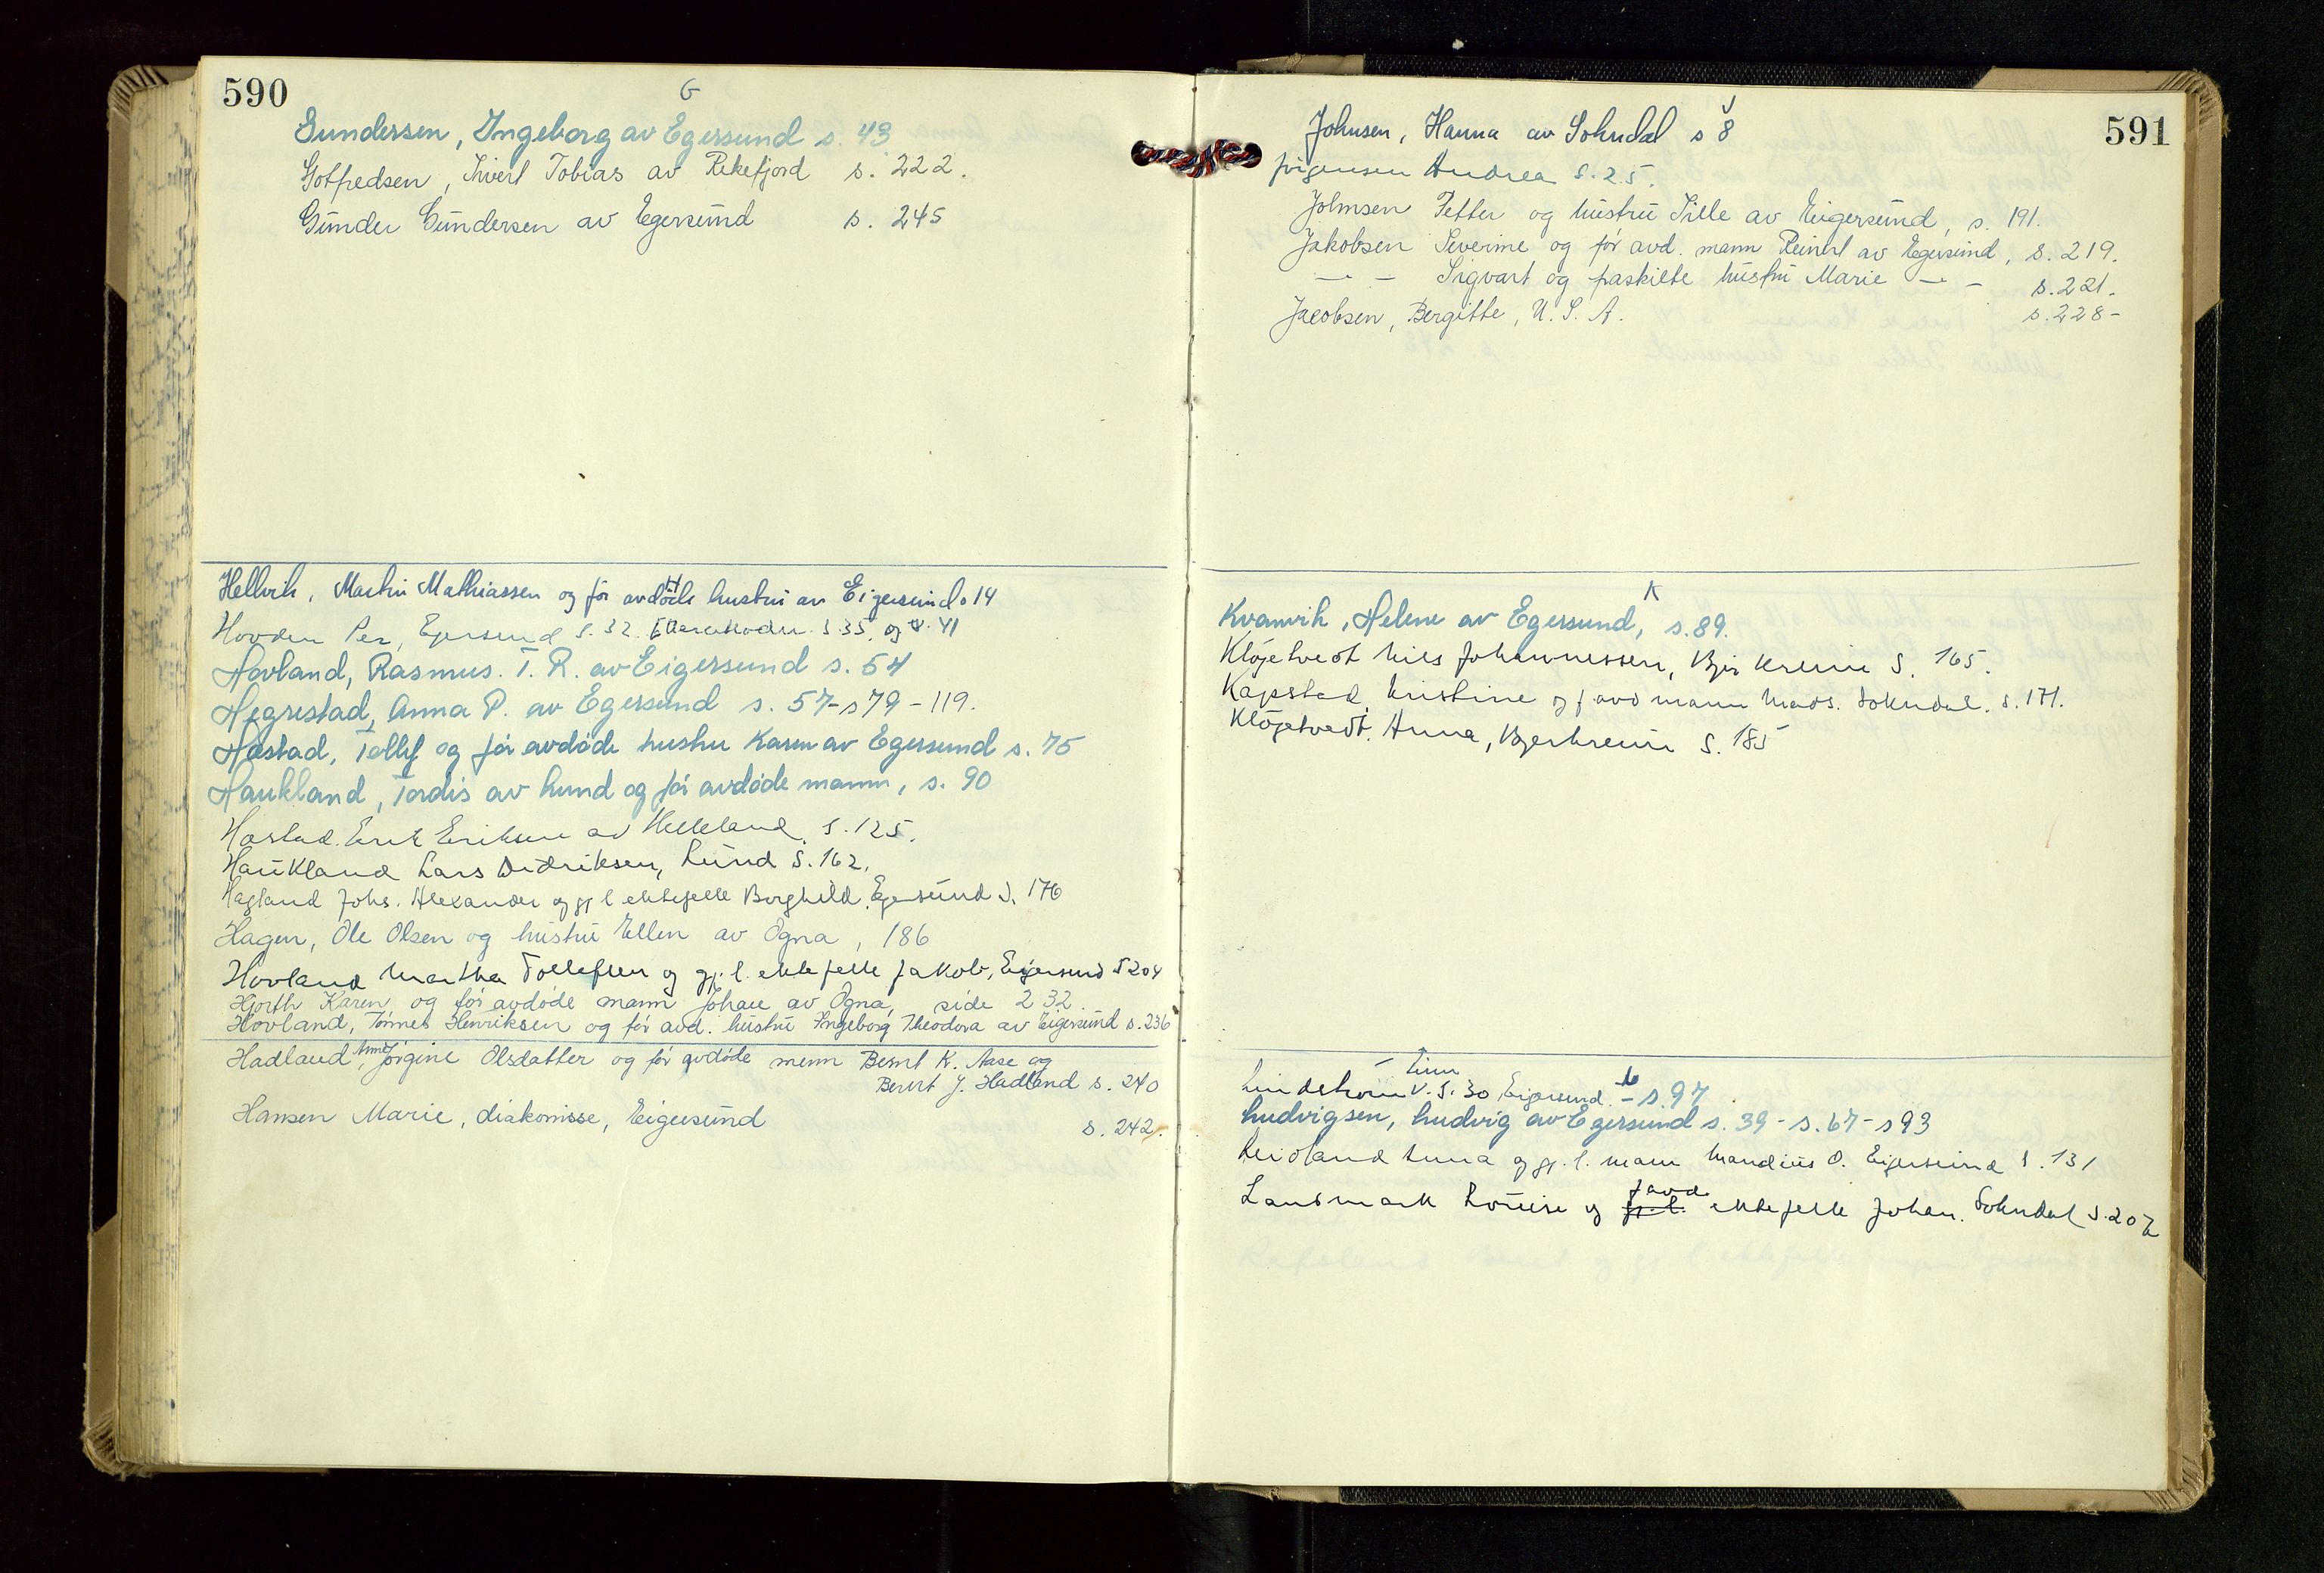 590
G
Gundersen, Ingeborg av Egersund s. 43
Gotfredsen, Sivert Tobias av Rekefjord s. 222.
Gunder Gundersen av Egersund s. 245
H
Hellvik, Martin Mathiassen og for avdøde hustru av Eigersund s 14
Hovden Per, Egersund S. 32. S. 35, og s. 41
Hovland, Rasmus. T. R. av Eigersund s. 54
Hegrestad, Anna P. av Egersund s. 57 - s 79 - 119.
Hæstad, Tollef og for avdøde hustru Karen av Egersund s. 75
Haukland, Tordis av Lund og for avdøde mann, s. 90
Hæstad. Erik Eriksen av Helleland. S. 125.
Haukland Lars Didriksen, Lund S. 162.
Hagland Johs. Alexander og gj l ektefelle Borghild. Egersund S. 176
Hagen, Ole Olsen og hustru Ellen av Ogna, 186
Hovland Martha Tollefsen og gj. l. ektefelle Jakob, Eigersund S 204
Hjorth Karen og for avdøde mann Johan av Ogna, side 232.
Hovland, Tønnes Henriksen og for avd. hustru Ingeborg Theodora av Eigersund s. 236
Hadland, Anne Jørgine Olsdatter og for avdøde menn Bernt K. Aase og
Bernt J. Hadland s. 240
Hansen Marie, diakonisse, Eigersund s. 242.
591
J
Johnsen, Hanna av Sokndal s 8
Jørgensen Andrea S. 25.
Johnsen Petter og hustru Sille av Eigersund, s. 191.
Jakobsen Severine og for avd. mann Reinert av Egersund, s. 219.
— " — Sigvart og fraskilte hustru Marie — " — s. 221.
Jacobsen, Bergitte, U. S. A. s. 228-
K
Kvamvik, Helene av Egersund, s. 89.
Kløgetvedt Nils Johannessen, Bjerkreim S. 165.
Kapstad, Kristine og f avd mann Mads. Sokndal. S. 171.
Kløgetvedt. Anna, Bjerkreim S. 185
L
V. S. 30, Eigersund. - s. 97
Ludvigsen, Ludvig av Egersund s. 39 - s. 67 - s 93
Leidland Anna og gj. l. mann Mandius O. Eigersund S. 131
Landmark Louise og gj. l. f avd ektefelle Johan. Sokndal S. 207